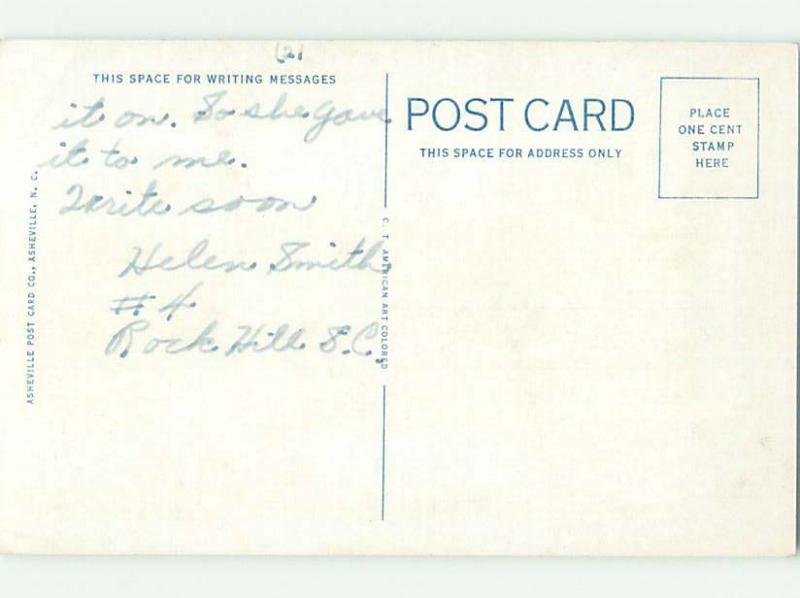 (2)
THIS SPACE FOR WRITING MESSAGES
it on. So she gave
it to me.
Write soon
Helen Smith
#4
Rock Hill S.C.
ASHEVILLE POST CARD CO., ASHEVILLE, N. C.
C. T. AMERICAN ART COLORED
POST CARD
THIS SPACE FOR ADDRESS ONLY
PLACE
ONE CENT
STAMP
HERE